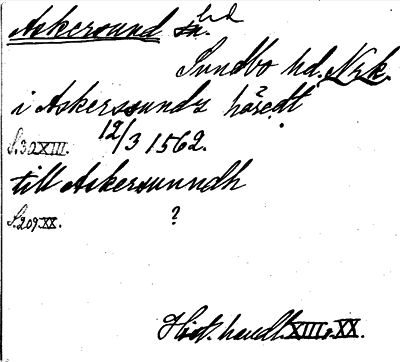 Askersund sn. hd
Sundbo hd. Nrk.
i Askerssunds häredt
S. 32 XIII. 12/3 1562.
till Askersunndh
S. 209 XX. ?
Hist. handl. XIII o. XX.